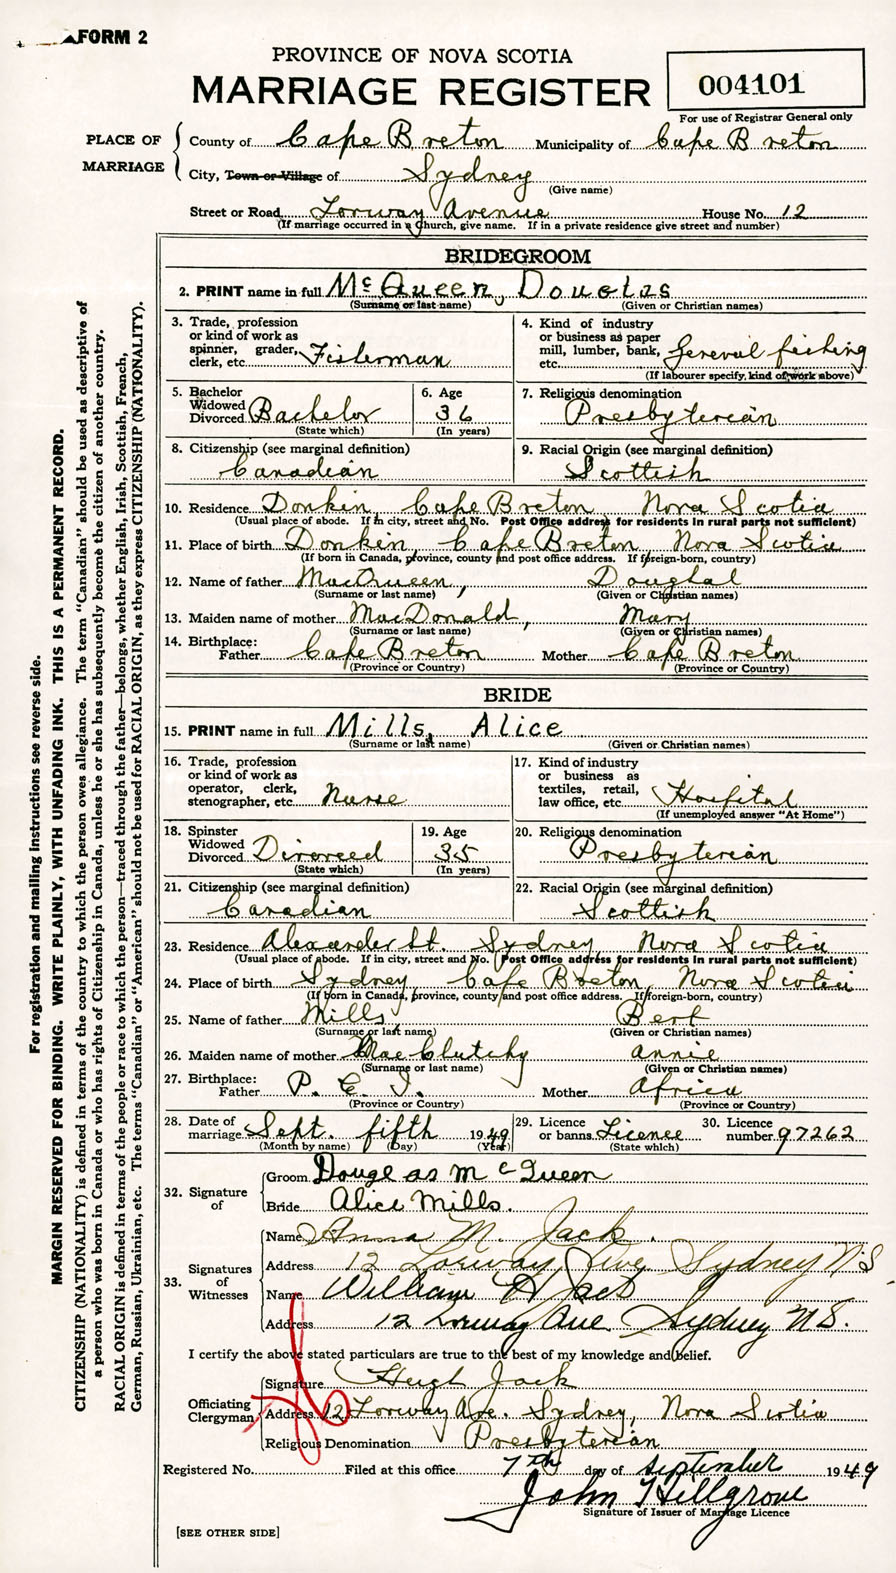 FORM 2
PROVINCE OF NOVA SCOTIA
MARRIAGE REGISTER
004101
For use of Registrar General only
PLACE OF MARRIAGE
County of Cape Breton Municipality of Cape Breton
City, Town or Village of Sydney
(Give name)
Street or Road Lorway Avenue House No. 12
(If marriage occurred in a Church, give name. If in a private residence give street and number)
BRIDEGROOM
2. PRINT name in full McQueen, Douglas
(Surname or last name) (Given or Christian names)
3. Trade, profession or kind of work as spinner, grader, clerk, etc. Fisherman
4. Kind of industry or business as paper mill, lumber, bank, etc. General fishing
(If labourer specify, kind of work above)
5. Bachelor Widowed Divorced Bachelor
(State which)
6. Age 36
(In years)
7. Religious denomination
Presbyterian
8. Citizenship (see marginal definition)
Canadian
9. Racial Origin (see marginal definition)
Scottish
10. Residence Donkin Cape Breton Nova Scotia
(Usual place of abode. If in city, street and No. Post Office address for residents in rural parts not sufficient)
11. Place of birth Donkin Cape Breton Nova Scotia
(If born in Canada, province, county and post office address. If foreign-born, country)
12. Name of father MacQueen, Doughal
(Surname or last name) (Given or Christian names)
13. Maiden name of mother MacDonald, Mary
(Surname or last name) (Given or Christian names)
14. Birthplace:
Father Cape Breton Mother Cape Breton
(Province or Country) (Province or Country)
BRIDE
15. PRINT name in full Mills, Alice
(Surname or last name) (Given or Christian names)
16. Trade, profession or kind of work as operator, clerk, stenographer, etc. Nurse
17. Kind of industry or business as textiles, retail, law office, etc. Hospital
(If unemployed answer "At Home")
18. Spinster Widowed Divorced Divorced
(State which)
19. Age 35
(In years)
20. Religious denomination
Presbyterian
21. Citizenship (see marginal definition)
Canadian
22. Racial Origin (see marginal definition)
Scottish
23. Residence Alexander St. Sydney Nova Scotia
(Usual place of abode. If in city, street and No. Post Office address for residents in rural parts not sufficient)
24. Place of birth Sydney Cape Breton, Nova Scotia
(If born in Canada, province, county and post office address. If foreign-born, country)
25. Name of father Mills Bert
(Surname or last name) (Given or Christian names)
26. Maiden name of mother MacClutchy Annie
(Surname or last name) (Given or Christian names)
27. Birthplace:
Father P. E. I. Mother Africa
(Province or Country) (Province or Country)
28. Date of marriage Sept. fifth 1949
(Month by name) (Day) (Year)
29. Licence or banns Licence
(State which)
30. Licence number 97262
32. Signature of
Groom Douglas McQueen
Bride Alice Mills.
33. Signatures of Witnesses
Name Anna M. Jack.
Address 12 Lorway Ave Sydney N S
Name William H Jack
Address 12 Lorway Ave Sydney N S.
I certify the above stated particulars are true to the best of my knowledge and belief.
Officiating Clergyman
Signature Hugh Jack
Address 12 Lorway Ave. Sydney, Nova Scotia
Religious Denomination Presbyterian
Registered No. Filed at this office 7th day of September 1949
John Hillgrove
Signature of Issuer of Marriage Licence
[SEE OTHER SIDE]
For registration and mailing instructions see reverse side.
MARGIN RESERVED FOR BINDING. WRITE PLAINLY, WITH UNFADING INK. THIS IS A PERMANENT RECORD.
CITIZENSHIP (NATIONALITY) is defined in terms of the country to which the person owes allegiance. The term "Canadian" should be used as descriptive of
a person who was born in Canada or who has rights of Citizenship in Canada, unless he or she has subsequently become the citizen of another country.
RACIAL ORIGIN is defined in terms of the people or race to which the person—traced through the father—belongs, whether English, Irish, Scottish, French,
German, Russian, Ukrainian, etc. The terms "Canadian" or "American" should not be used for RACIAL ORIGIN, as they express CITIZENSHIP (NATIONALITY).